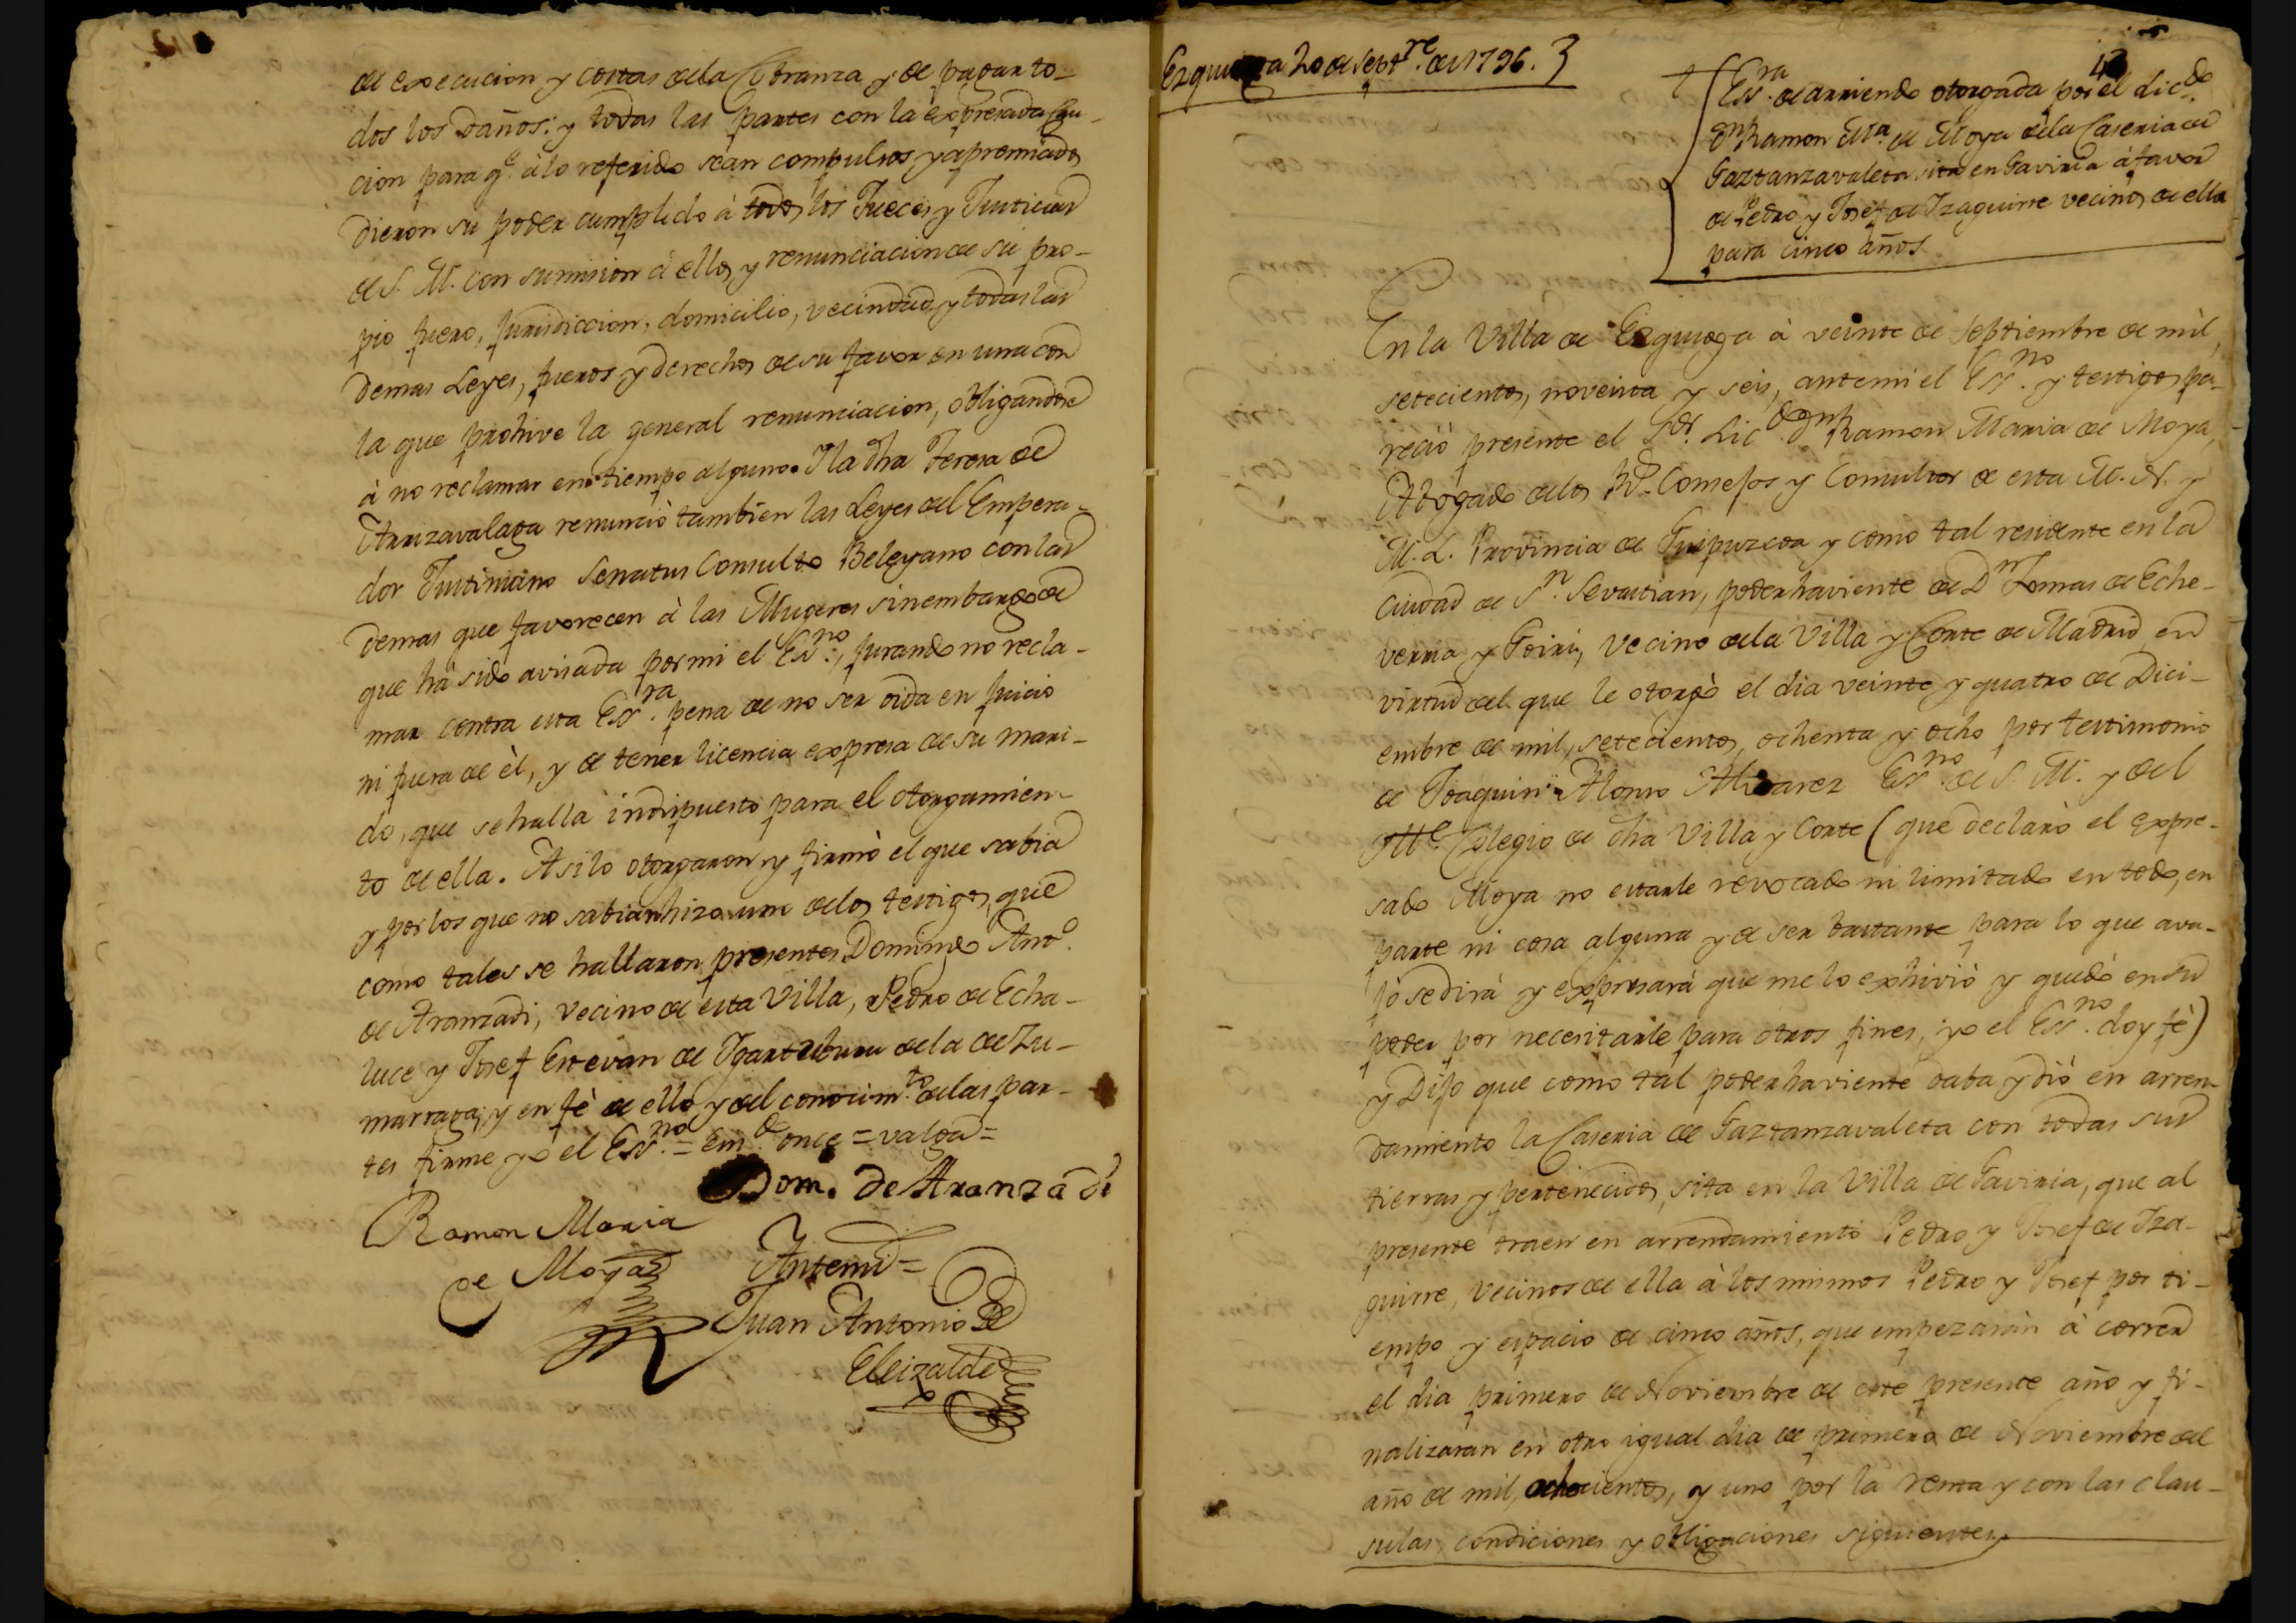 de execucion y costas dela Cobranza y de pagar to-
dos los daños: y todas las partes con la expresada Cau-
cion para q.e à lo referido sean compulsos y apremiados
dieron su poder cumplido à todos los Jueces y Justicias
de S. M. con sumision à ellos y renunciacion de su pro-
pio fuero, jurisdiccion, domicilio, vecindad, y todas las
demas Leyes, fueros y derechos de su favor en una con
la que prohive la general renunciacion, obligandose
à no reclamar en tiempo alguno. Y la dha Teresa de
Arrizavalaga renunciò tambien las Leyes del Empera-
dor Justiniano Senatus Consulto Beleyano con las
demas que favorecen à las Mugeres sinembargo de
que hà sido avisada por mi el Ess.no, jurando no recla-
mar contra esta Ess.ra pena de no ser oida en juicio
ni fuera de èl, y de tener licencia expresa de su mari-
do, que se halla indispuesto para el otorgamien-
to de ella. Asi lo otorgaron y firmò el que sabia
y por los que no sabian hizo uno delos testigos, que
como tales se hallaron presentes Domingo Ant.o
de Aranzadi, vecino de esta Villa, Pedro de Echa-
luce y Josef Estevan de Ygartuburu dela de Zu-
marraga; y en fè de ello y del conocim.to delas par-
tes firme yo el Ess.no = Em.do once = valga =
Dom. de Aranzadi
Ramon Maria
de Moya
Antemi =
Juan Antonio De
Eleizalde
Ezquioga 20 de Sept.re de 1796.
Ess.ra de arriendo otorgada por el Lic.do
Dn Ramon M.a de Moya dela Caseria de
Gaztanzavaleta sita en Gaviria à favor
de Pedro y Josef de Yzaguirre vecinos de ella
para cinco años.
En la Villa de Ezquioga à veinte de Septiembre de mil,
setecientos, noventa y seis, antemi el Ess.no y testigos pa-
reciò presente el S.or Lic.do Dn Ramon Maria de Moya,
Abogado delos R.s Consejos y Consultor de esta M. N. y
M. L. Provincia de Guipuzcoa y como tal residente en la
Ciudad de S.n Sevastian, poderhaviente de Dn Tomas de Eche-
verria y Goiri, Vecino dela Villa y Corte de Madrid en
virtud del que le otorgò el dia veinte y quatro de Dici-
embre de mil, setecientos, ochenta y ocho por testimonio
de Joaquin Alonso Alvarez Ess.no de S. M. y del
Colegio de dha Villa y Corte (que declarò el expre-
sado Moya no estarle revocado ni limitado en todo, en
parte ni cosa alguna y de ser bastante para lo que ava-
jo se dirà y expresarà que me lo exhiviò y quedò en su
poder por necesitarle para otros fines, yo el Ess.no doy fè)
y Dijo que como tal poderhaviente daba y diò en arren-
damiento la Caseria de Gaztanzavaleta con todas sus
tierras y pertenecidos, sita en la Villa de Gaviria, que al
presente traen en arrendamiento Pedro y Josef de Yza-
guirre, Vecinos de ella à los mismos Pedro y Josef por ti-
empo y espacio de cinco años, que empezaràn à correr
el dia primero de Noviembre de este presente año y fi-
nalizaran en otro igual dia de primero de Noviembre del
año de mil, ochocientos, y uno por la renta y con las clau-
sulas, condiciones y obligaciones siguientes